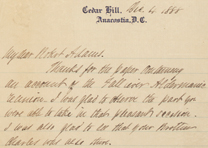 Cedar Hill,
Anacostia, D.C. Dec. 4. 188
My dear Robert Adams.
Thanks for the paper containing
an account of the Fall River
Reunion. I was glad to observe the part you
were able to take in that pleasant occasion.
I was also glad to see that your brother
Charles was also there.